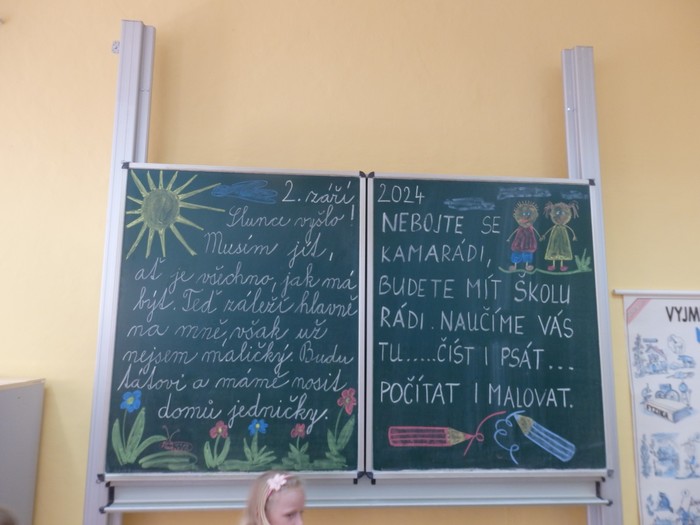 2. září 2024
Slunce vyšlo!
Musím jít,
ať je všechno, jak má
být. Teď záleží hlavně
na mně, však už
nejsem maličký. Budu
tátovi a mámě nosit
domů jedničky.
NEBOJTE SE
KAMARÁDI,
BUDETE MÍT ŠKOLU
RÁDI. NAUČÍME VÁS
TU.....ČÍST I PSÁT...
POČÍTAT I MALOVAT.
VYJM